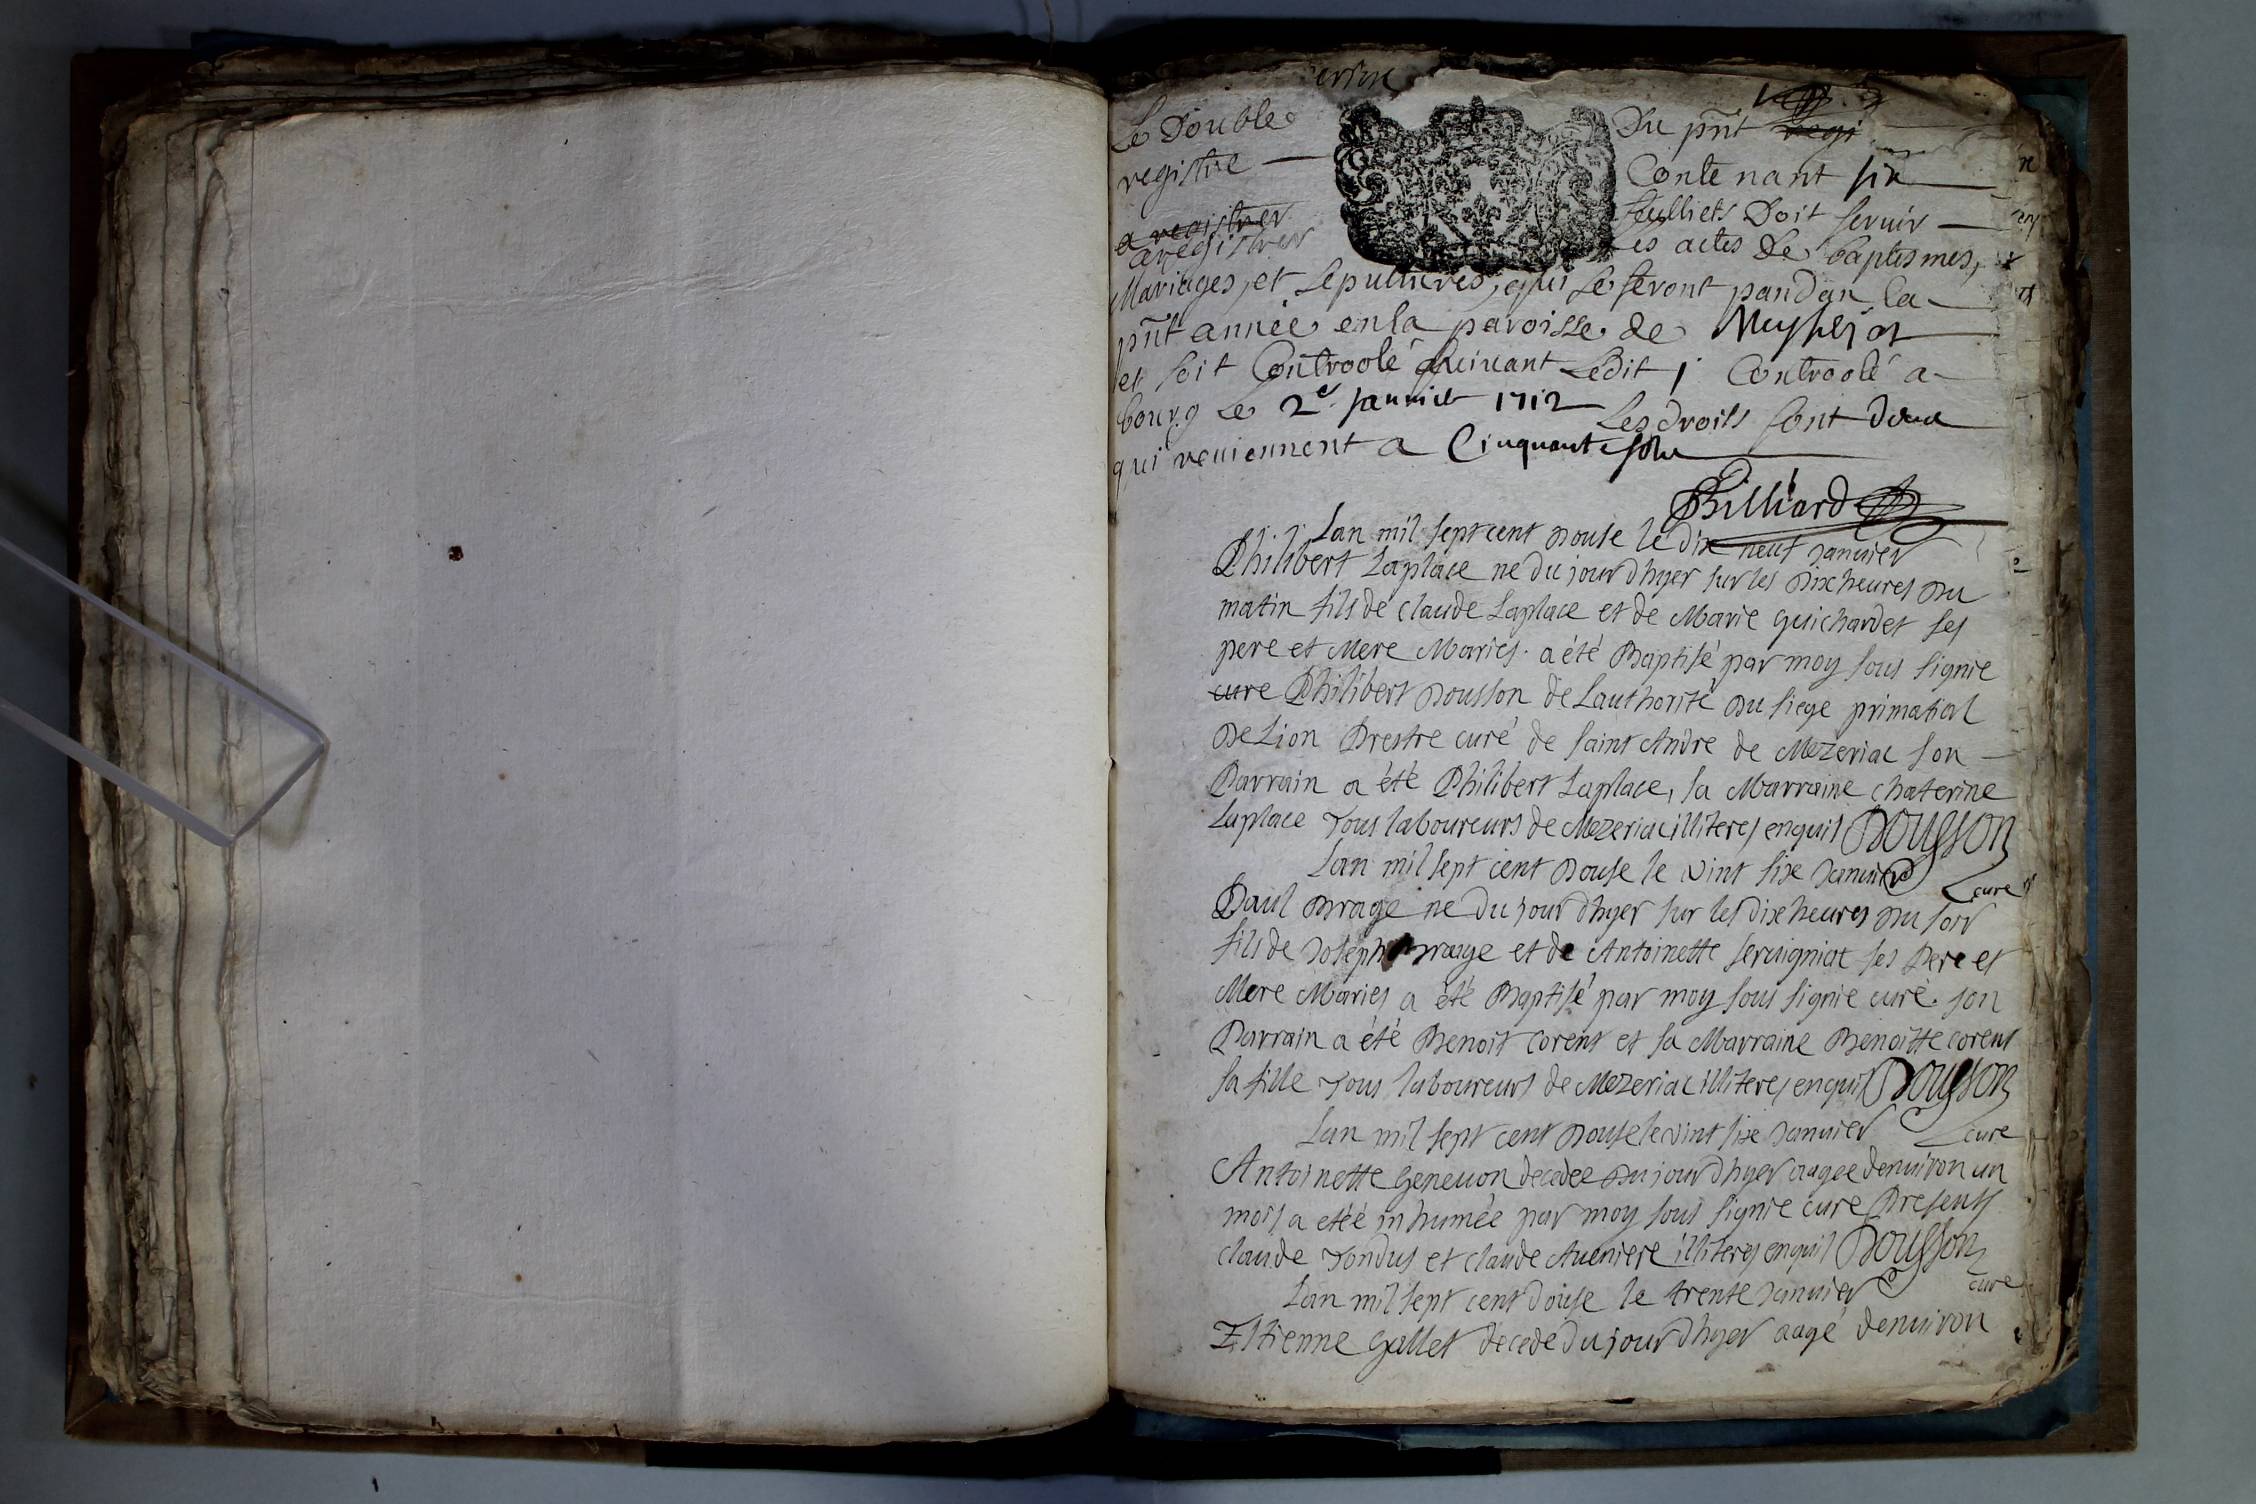 Le Double Du pnt regi
registre Contenant six
feulliets Doit servir
a registrer
aregistrer Les actes De baptesmes,
Mariages, et sepultures, qui se feront pandan la
pnt année en la paroisse de
et soit Controolé suivant Ledit / Controolé a
bourg Le 2e Janvier 1712 Les droits sont deux
qui reuiennent a Cinquante solz
Billiard
Lan mil sept cent Douse le dix neuf Januier
Philibert Laplace ne du jour dhyer sur les Dix heures Du
matin fils de Claude Laplace et de Marie guichardet ses
pere et Mere Maries. a été Baptisé par moy sous signie
cure Philibert Dousson de Lauthorité Du siege primatial
De Lion Prestre curé de saint Andre de Mezeriac son
Parrain a été Philibert Laplace, sa Marraine chaterine
Laplace Tous laboureurs de Mezeriac illiteres enquis Dousson
cure
Lan mil sept cent Douse le vint sixe Januier
Paul Brage ne Du jour dhyer sur les dixe heures Du soir
fils de Joseph Brage et de Antoinette seruigniat ses Pere et
Mere Maries a été Baptisé par moy sous signie curé. son
Parrain a été Benoit Corent et sa Marraine Benoitte corent
sa fille Tous laboureurs de Mezeriac illiteres enquis Dousson
cure
Lan mil sept cent Douse le vint sixe Januier
Antoinette geneuon decedee Du jour dhyer aagee denuiron un
mois a etéé inhumée par moy sous signie cure Presents
claude Tondus et claude Aueniere illiteres enquis Dousson
cure
Lan mil sept cent Douse le trente Januier
Estienne gallet decedé du jour dhyer aagé denuiron